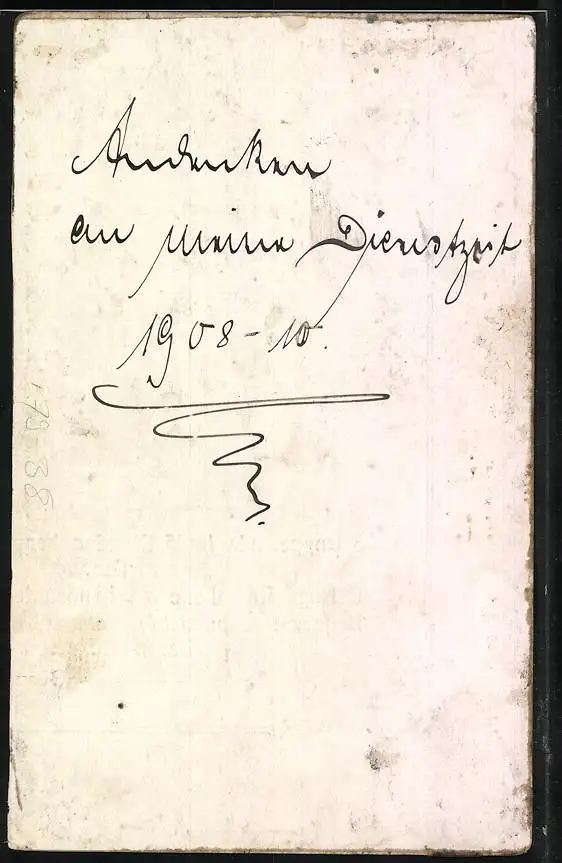 Andenken
an meine Dienstzeit
1908-10.